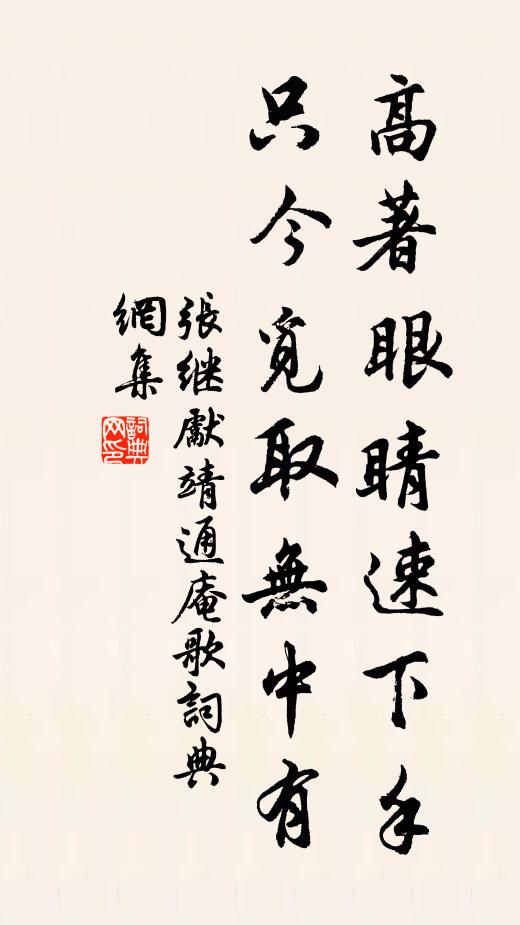 高著眼睛速下手
只今覓取無中有
張继獻靖通庵歌詞典
網集
詞典
网印